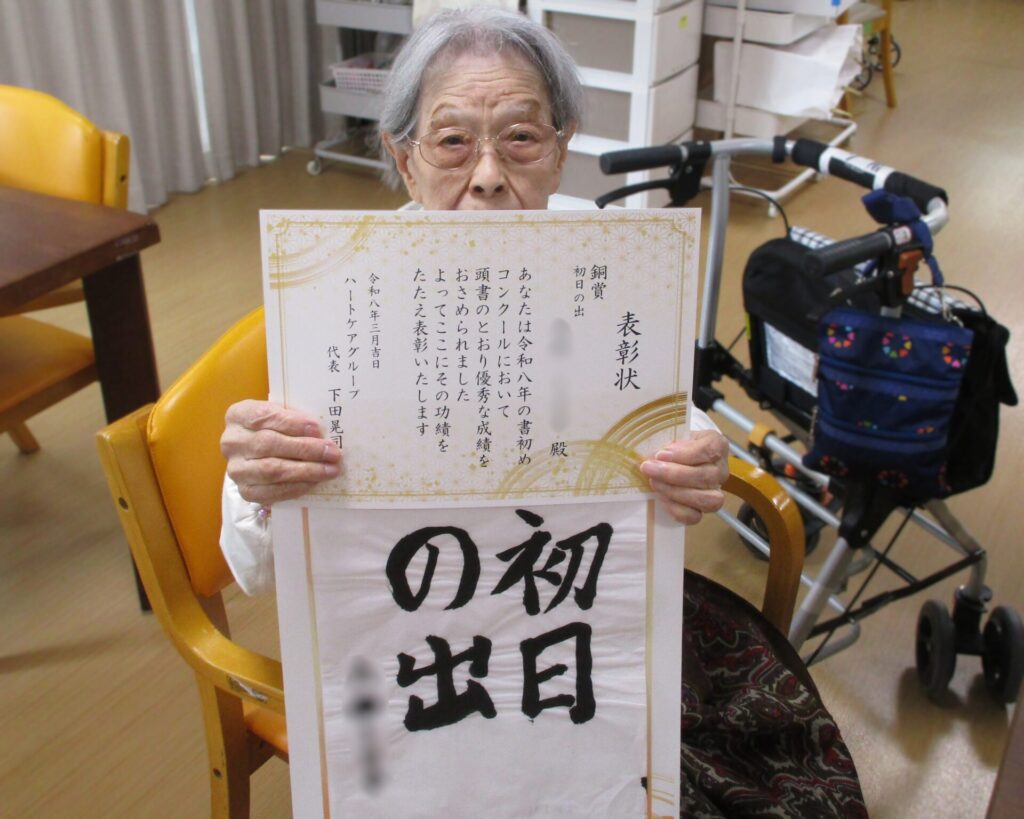 表彰状
銅賞
初日の出
殿
あなたは令和八年の書初め
コンクールにおいて
頭書のとおり優秀な成績を
おさめられました
よってここにその功績を
たたえ表彰いたします
令和八年三月吉日
ハートケアグループ
代表 下田晃司
初日
の出